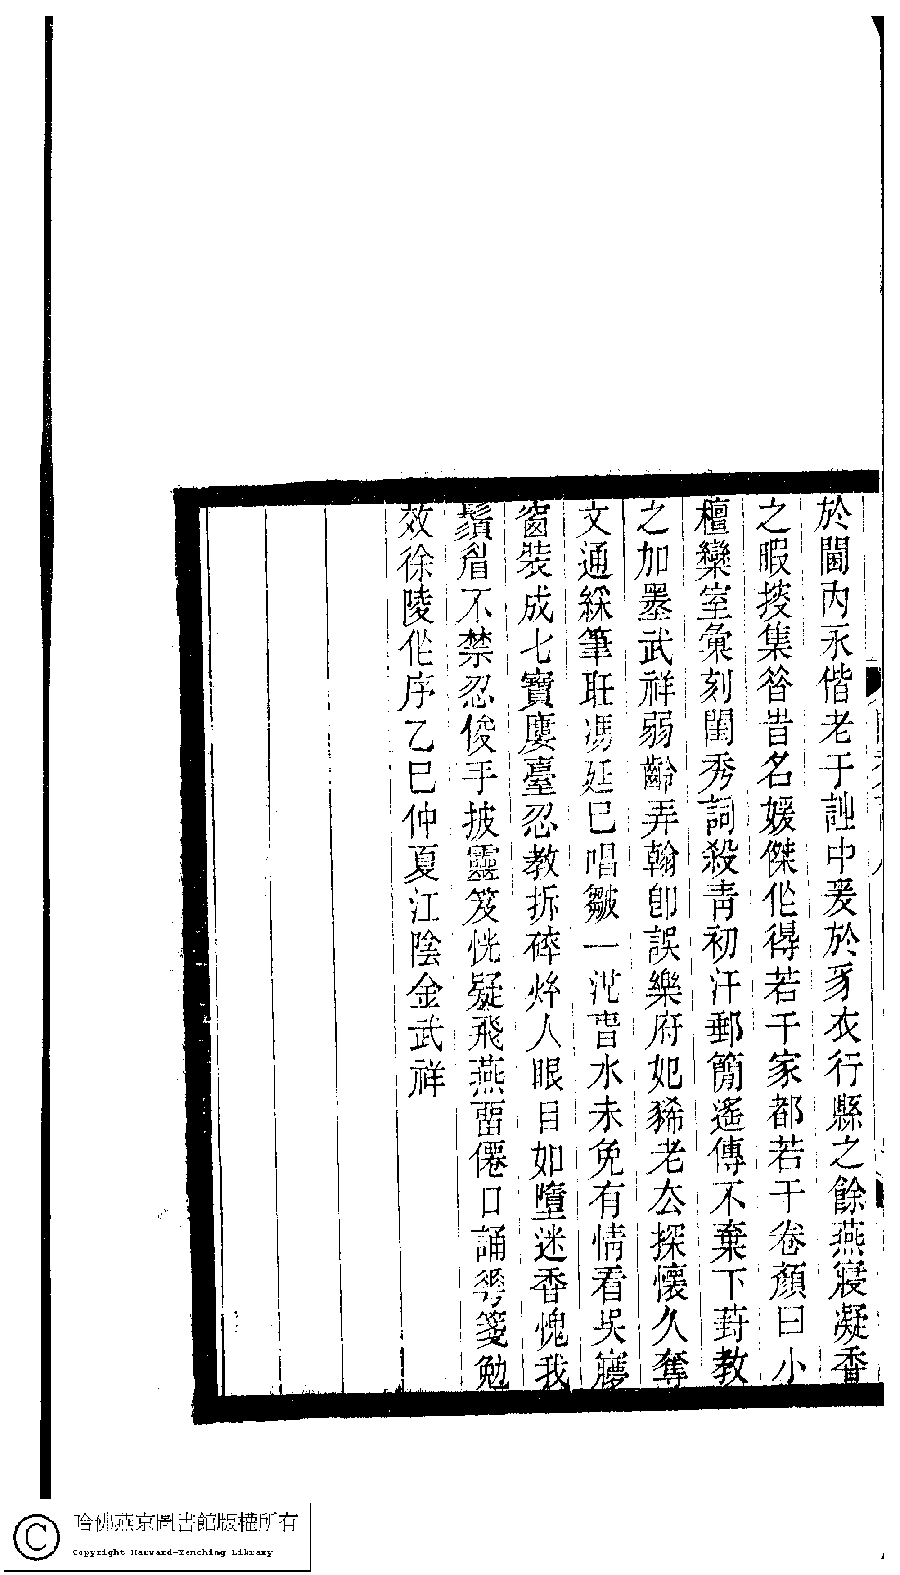 於閫內永偕老于詶中爰於豸衣行縣之餘燕寢凝香
之暇挍集簭昔名媛傑作得若干家都若干卷顏曰小
檀欒室彙刻閨秀詞殺青初汗郵簡遙傳不棄下葑教
之加墨武祥弱齡弄翰卽誤樂府妃豨老公探懷久奪
文通綵筆甠馮延巳唱皺一池春水未免有情看吳㝱
窗裝成七寶廔臺忍教拆碎炫人眼目如墮迷香愧我
鬚眉不禁忍俊手披靈笈恍疑飛燕畱僊口誦琴箋勉
效徐陵作序乙巳仲夏江陰金武祥
哈佛燕京圖書館版權所有
Copyright Harvard-Yenching Library